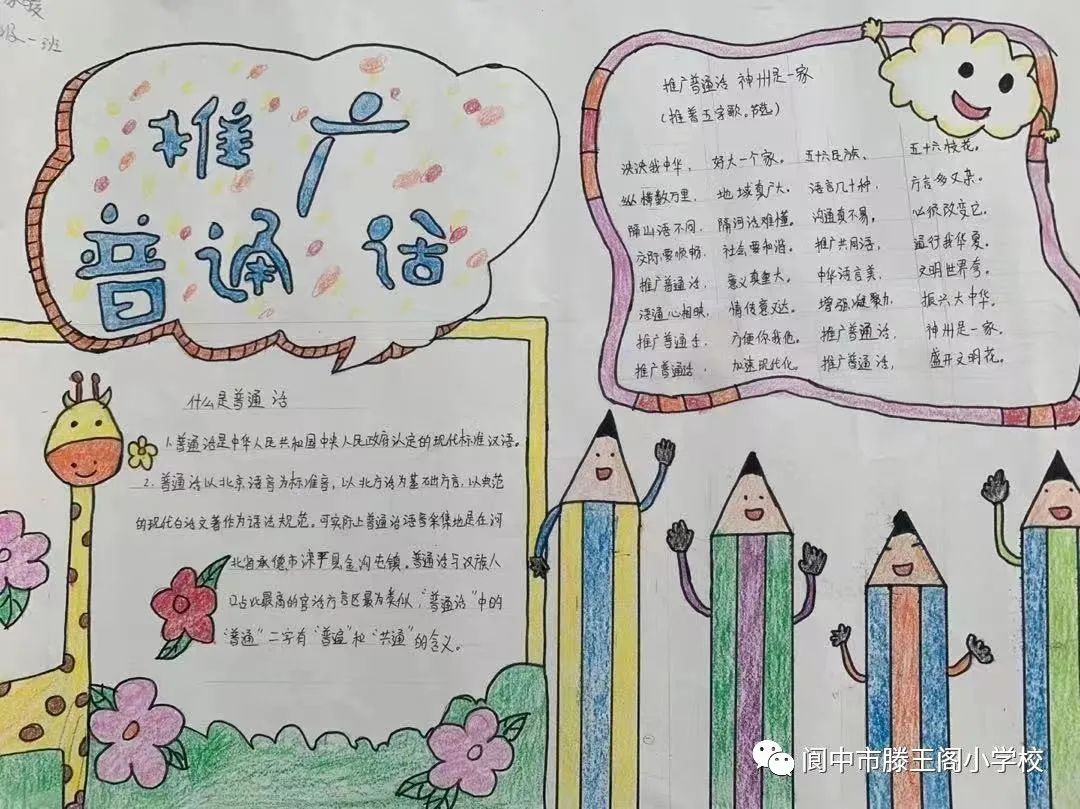 级一班
推广
普通话
什么是普通话
1.普通话是中华人民共和国中央人民政府认定的现代标准汉语。
2.普通话以北京语音为标准音,以北方话为基础方言,以典范
的现代白话文著作为语法规范。可实际上普通话语音采集地是在河
北省承德市滦平县金沟屯镇。普通话与汉族人
口占比最高的官话方言区最为类似,"普通话"中的
"普通"二字有"普遍"和"共通"的含义。
推广普通话 神州是一家
(推普五字歌。节选)
泱泱我中华, 好大一个家。 五十六民族, 五十六枝花。
纵横数万里, 地域真广大。 语言几十种, 方言多又杂。
隔山语不同, 隔河话难懂。 沟通真不易, 必须改变它。
交际要顺畅, 社会要和谐。 推广共同语, 通行我华夏。
推广普通话, 意义真重大。 中华语言美, 文明世界夸。
语通心相映, 情传意又达。 增强凝聚力, 振兴大中华。
推广普通话, 方便你我他。 推广普通话, 神州是一家。
推广普通话, 加速现代化。 推广普通话, 盛开文明花。
阆中市滕王阁小学校